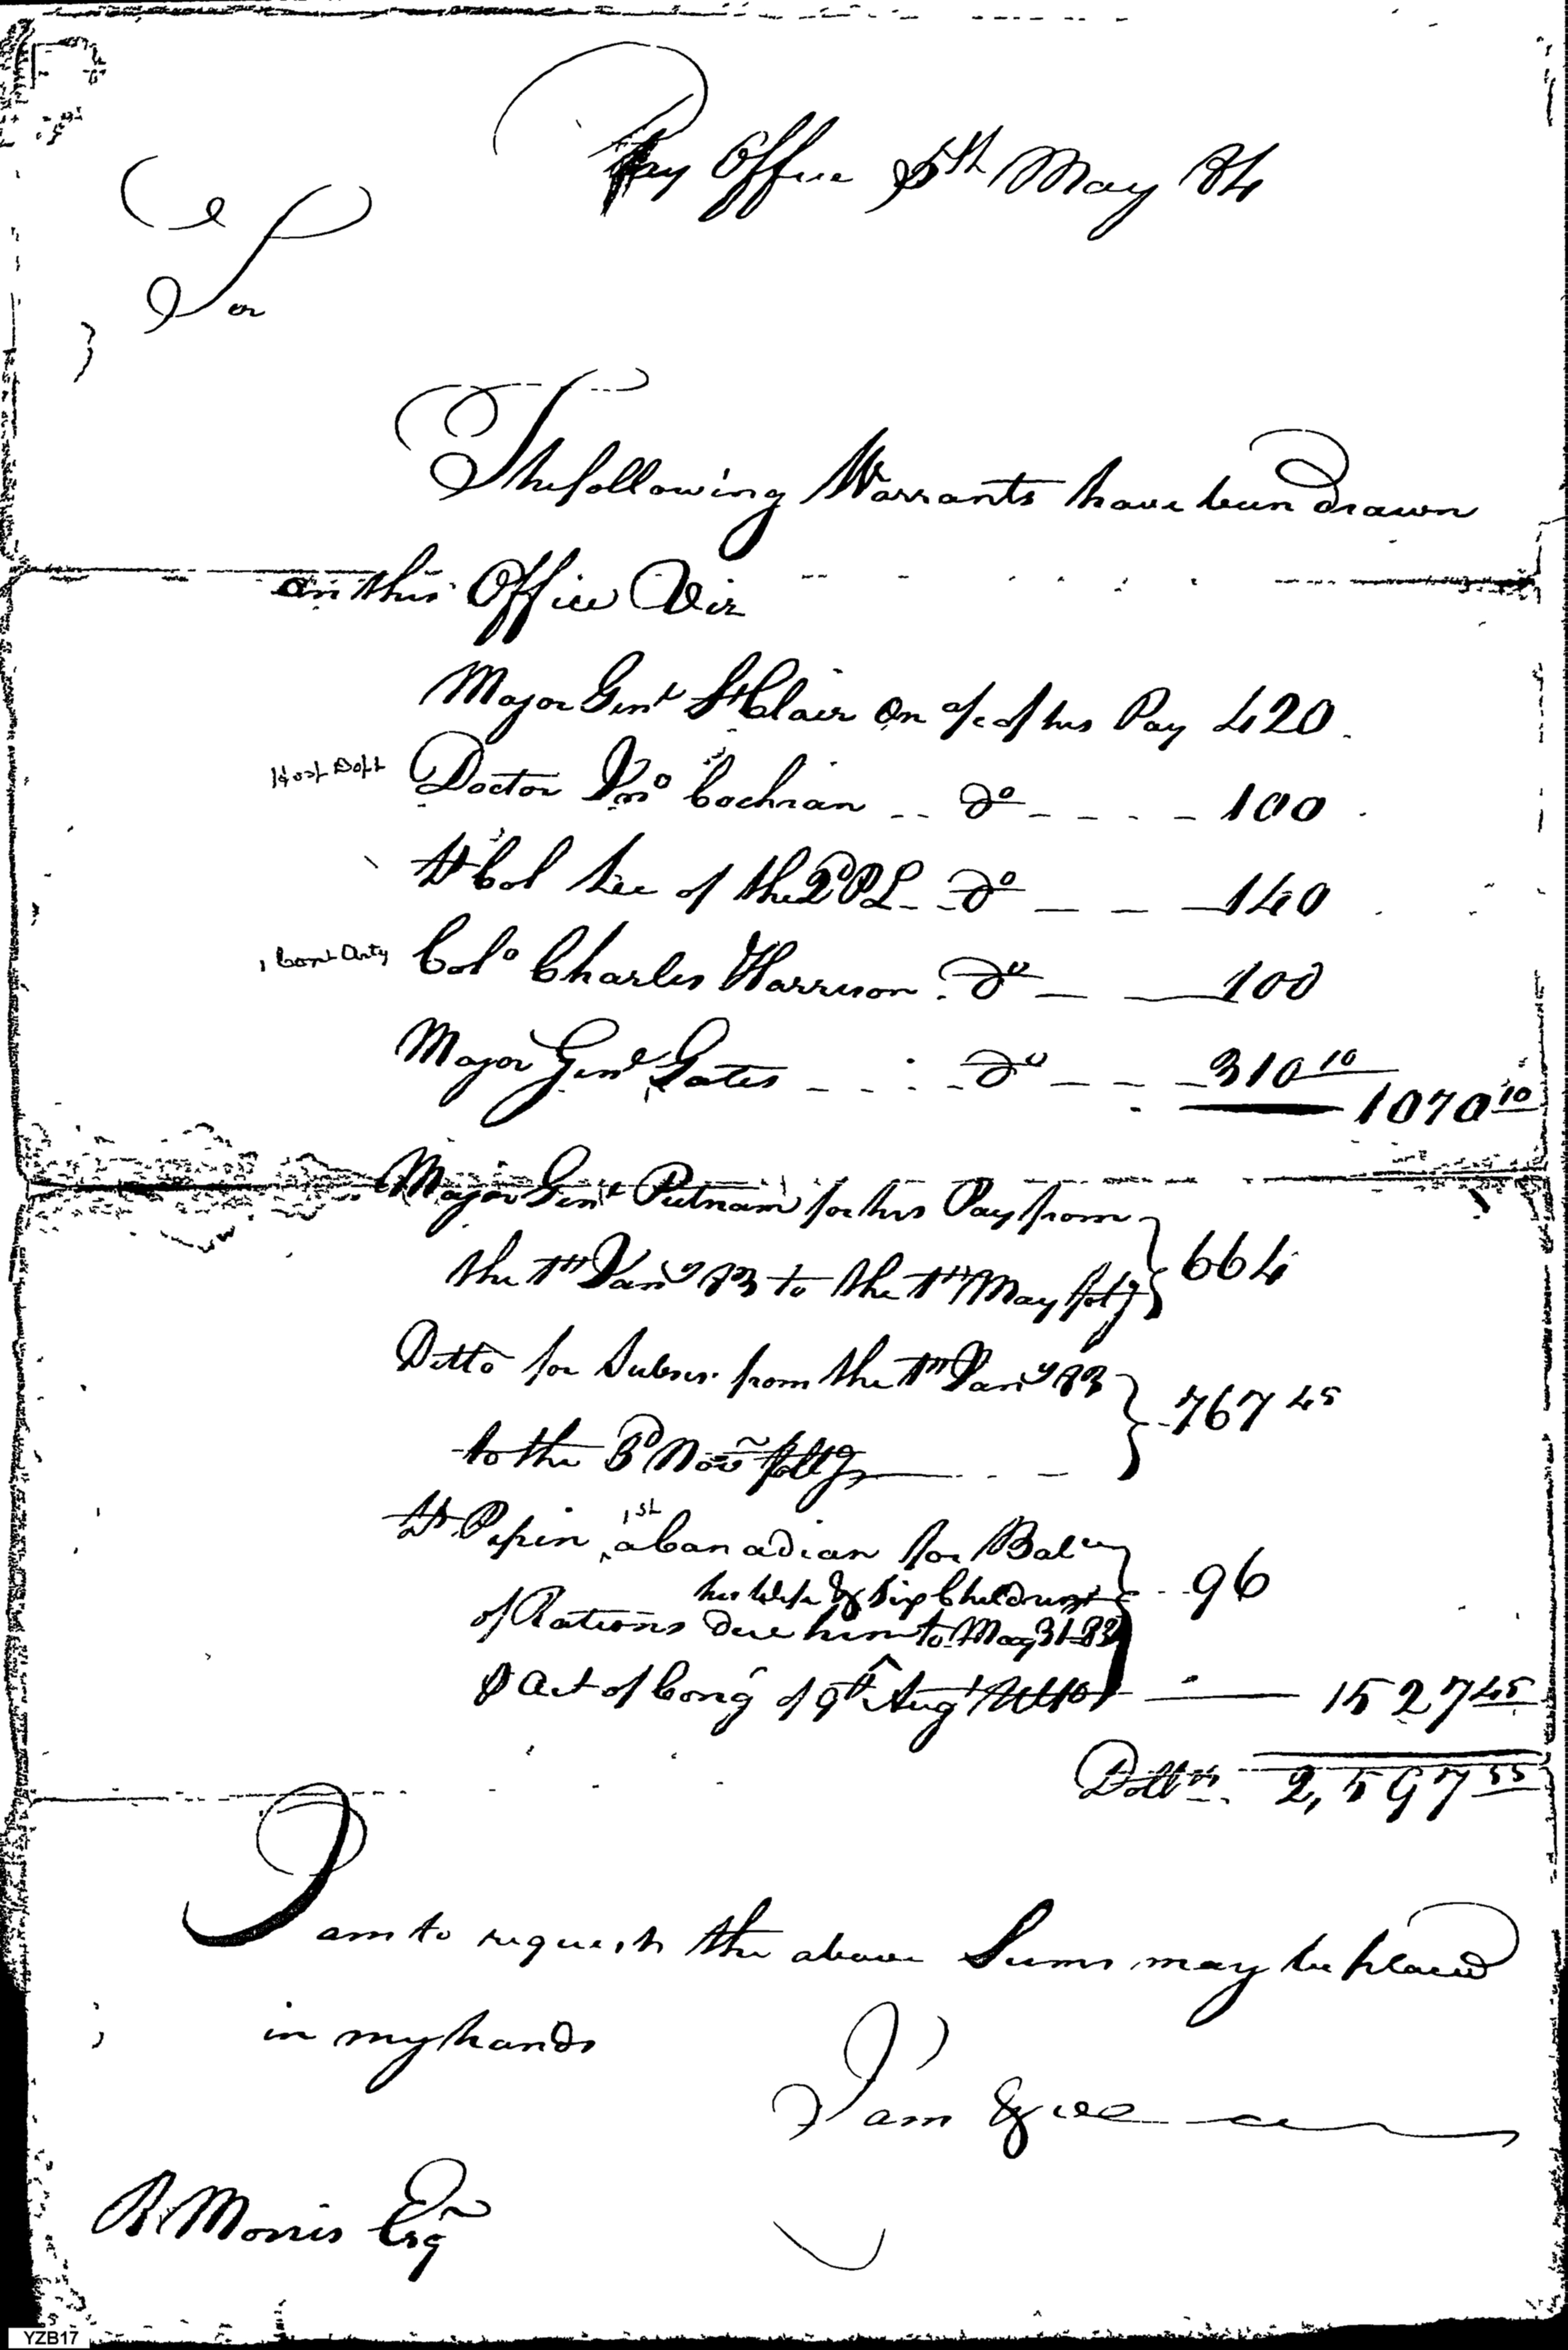 Pay Office 5th May 84
Sir
The following Warrants have been drawn
on this Office Viz
Major Genl St Clair On a/c of his Pay 420
Hosp Dept Doctor Jno Cochran do 100
Lt Col Lee of the 2d P L do 140
Cont Arty Colo Charles Harrison do 100
Major Genl Gates do 310 10
1070 10
Major Genl Putnam for his Pay from
the 1st Jany 83 to the 1st May follg 664
Ditto for Subsis. from the 1st Jany 83
767 45
to the 3d Nov follg
Lt Pepin, 1st a Canadian for Balce
his Wife & Six Children 96
of Rations due him to May 31 83
P Act of Cong of 9th Augt Ulto 1527 45
Dollrs 2,597 55
I am to request the above Sums may be placed
in my hands
I am &c
R Morris Esqr
YZB17